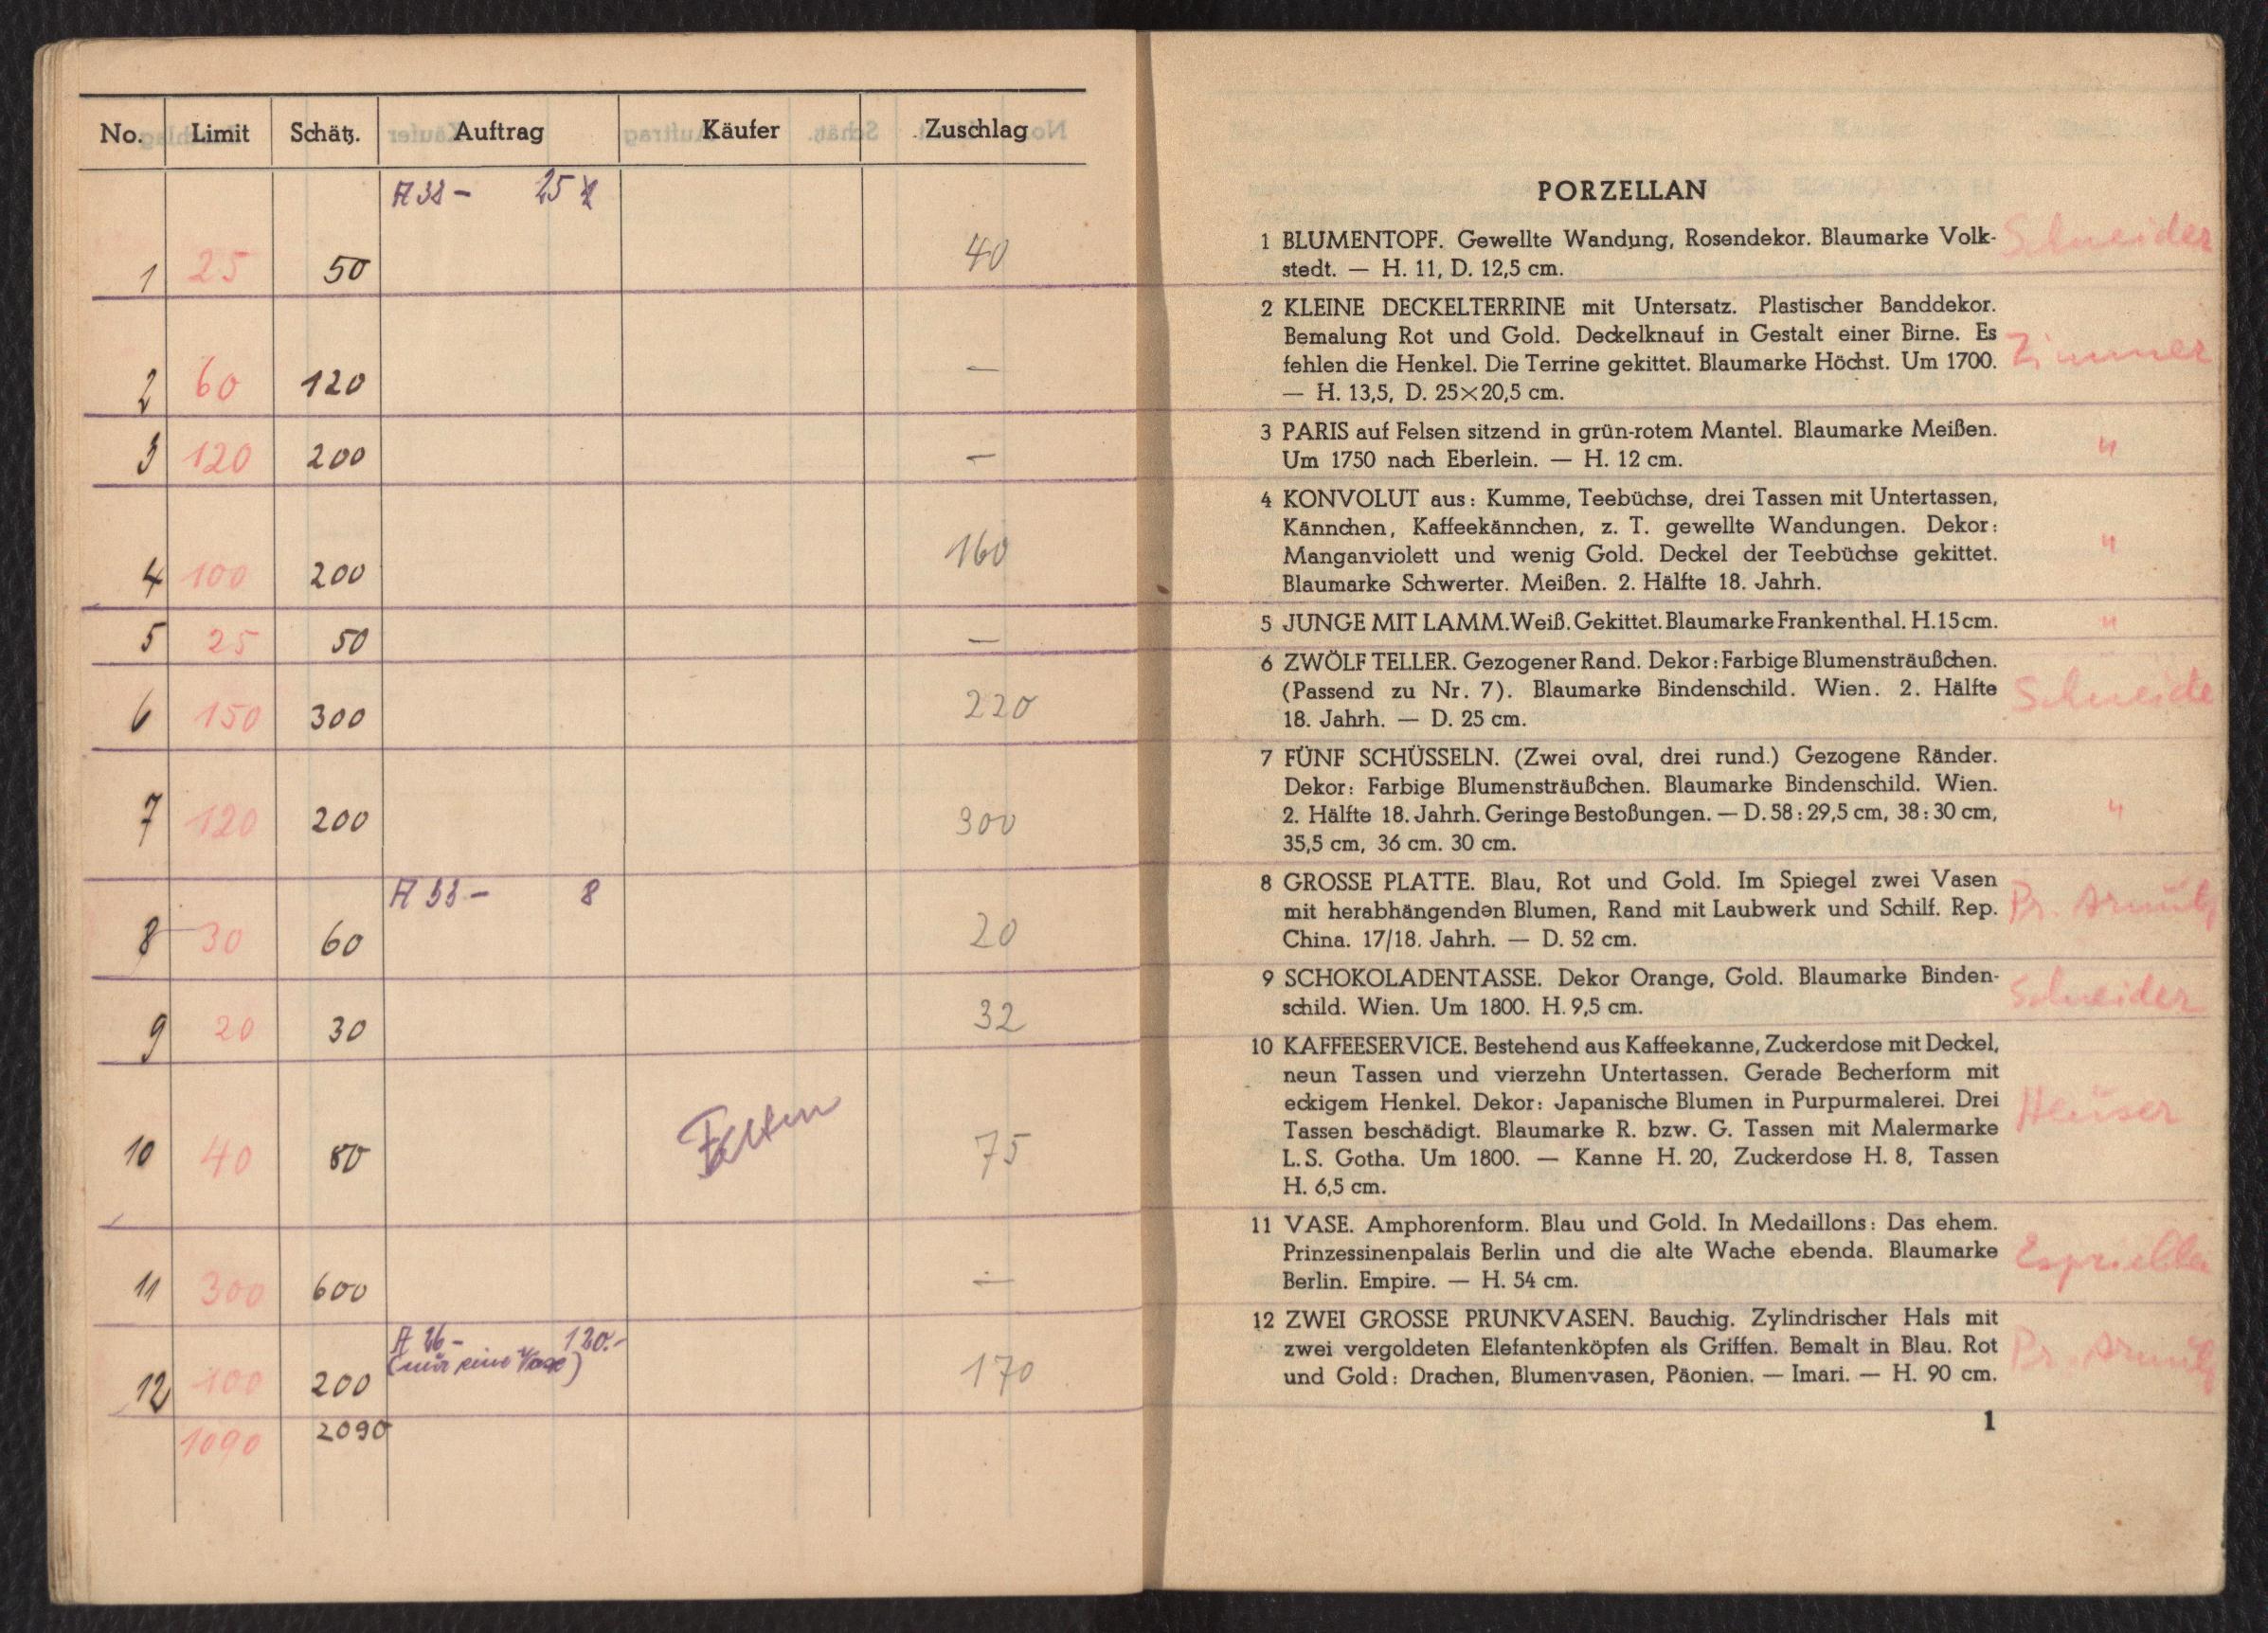 No. Limit Schätz. Auftrag Käufer Zuschlag
A 38 - 25
1 25 50 40
2 60 120 —
3 120 200 —
4 100 200 160
5 25 50 —
6 150 300 220
7 120 200 300
A 33 - 8
8 30 60 20
9 20 30 32
10 40 80 75
11 300 600 —
A 26 - 120.-
(nur eine Vase)
12 100 200 170
1090 2090
PORZELLAN
1 BLUMENTOPF. Gewellte Wandung, Rosendekor. Blaumarke Volk- Schneider
stedt. — H. 11, D. 12,5 cm.
2 KLEINE DECKELTERRINE mit Untersatz. Plastischer Banddekor.
Bemalung Rot und Gold. Deckelknauf in Gestalt einer Birne. Es Zimmer
fehlen die Henkel. Die Terrine gekittet. Blaumarke Höchst. Um 1700.
— H. 13,5, D. 25×20,5 cm.
3 PARIS auf Felsen sitzend in grün-rotem Mantel. Blaumarke Meißen. "
Um 1750 nach Eberlein. — H. 12 cm.
4 KONVOLUT aus: Kumme, Teebüchse, drei Tassen mit Untertassen,
Kännchen, Kaffeekännchen, z. T. gewellte Wandungen. Dekor: "
Manganviolett und wenig Gold. Deckel der Teebüchse gekittet.
Blaumarke Schwerter. Meißen. 2. Hälfte 18. Jahrh.
5 JUNGE MIT LAMM. Weiß. Gekittet. Blaumarke Frankenthal. H. 15 cm. "
6 ZWÖLF TELLER. Gezogener Rand. Dekor: Farbige Blumensträußchen.
(Passend zu Nr. 7). Blaumarke Bindenschild. Wien. 2. Hälfte Schneide
18. Jahrh. — D. 25 cm.
7 FÜNF SCHÜSSELN. (Zwei oval, drei rund.) Gezogene Ränder.
Dekor: Farbige Blumensträußchen. Blaumarke Bindenschild. Wien.
2. Hälfte 18. Jahrh. Geringe Bestoßungen. — D. 58 : 29,5 cm, 38 : 30 cm, "
35,5 cm, 36 cm. 30 cm.
8 GROSSE PLATTE. Blau, Rot und Gold. Im Spiegel zwei Vasen
mit herabhängenden Blumen, Rand mit Laubwerk und Schilf. Rep. Pr.
China. 17/18. Jahrh. — D. 52 cm.
9 SCHOKOLADENTASSE. Dekor Orange, Gold. Blaumarke Binden- Schneider
schild. Wien. Um 1800. H. 9,5 cm.
10 KAFFEESERVICE. Bestehend aus Kaffeekanne, Zuckerdose mit Deckel,
neun Tassen und vierzehn Untertassen. Gerade Becherform mit
eckigem Henkel. Dekor: Japanische Blumen in Purpurmalerei. Drei Heuser
Tassen beschädigt. Blaumarke R. bzw. G. Tassen mit Malermarke
L. S. Gotha. Um 1800. — Kanne H. 20, Zuckerdose H. 8, Tassen
H. 6,5 cm.
11 VASE. Amphorenform. Blau und Gold. In Medaillons: Das ehem.
Prinzessinenpalais Berlin und die alte Wache ebenda. Blaumarke
Berlin. Empire. — H. 54 cm.
12 ZWEI GROSSE PRUNKVASEN. Bauchig. Zylindrischer Hals mit
zwei vergoldeten Elefantenköpfen als Griffen. Bemalt in Blau. Rot Pr.
und Gold: Drachen, Blumenvasen, Päonien. — Imari. — H. 90 cm.
1